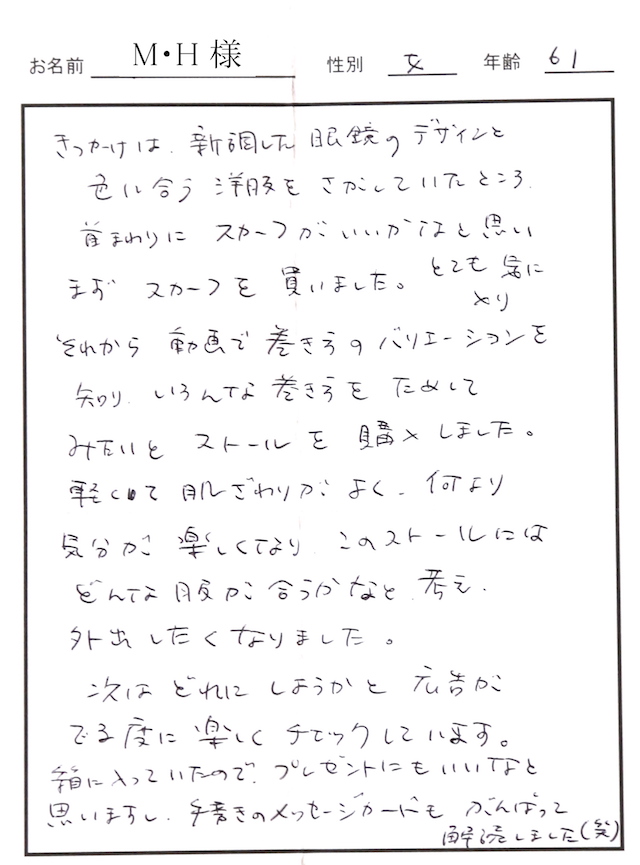 お名前 M・H 様 性別 女 年齢 61
きっかけは、新調した眼鏡のデザインと
色に合う洋服をさがしていたところ、
首まわりにスカーフがいいかなと思い
まずスカーフを買いました。とても気に
入り
それから動画で巻き方のバリエーションを
知り、いろんな巻き方をためして
みたいとストールを購入しました。
軽くて肌ざわりがよく、何より
気分が楽しくなり、このストールには
どんな服が合うかなと考え、
外出したくなりました。
次はどれにしようかと広告が
でる度に楽しくチェックしています。
箱に入っていたので、プレゼントにもいいなと
思いますし、手書きのメッセージカードもがんばって
解読しました(笑)